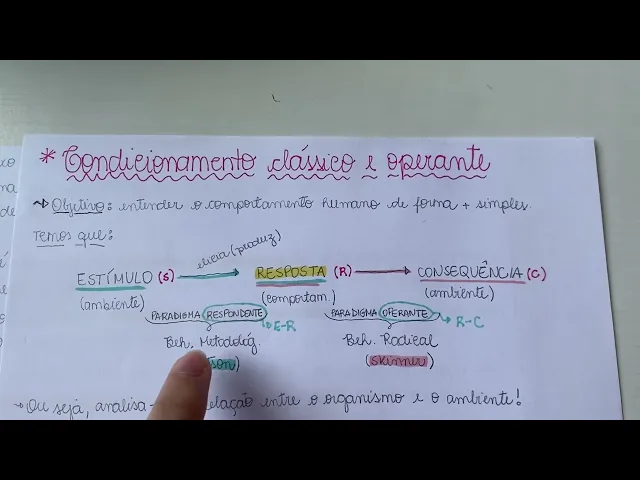 * Condicionamento clássico e operante
Objetivo: entender o comportamento humano de forma + simples.
Temos que:
elicia (produz)
ESTÍMULO (S) → RESPOSTA (R) → CONSEQUÊNCIA (C)
(ambiente) (comportam.) (ambiente)
PARADIGMA RESPONDENTE → E-R PARADIGMA OPERANTE → R-C
Beh. Metodológ. Beh. Radical
son) (Skinner)
→ Ou sejá, analisa- elação entre o organismo e o ambiente!